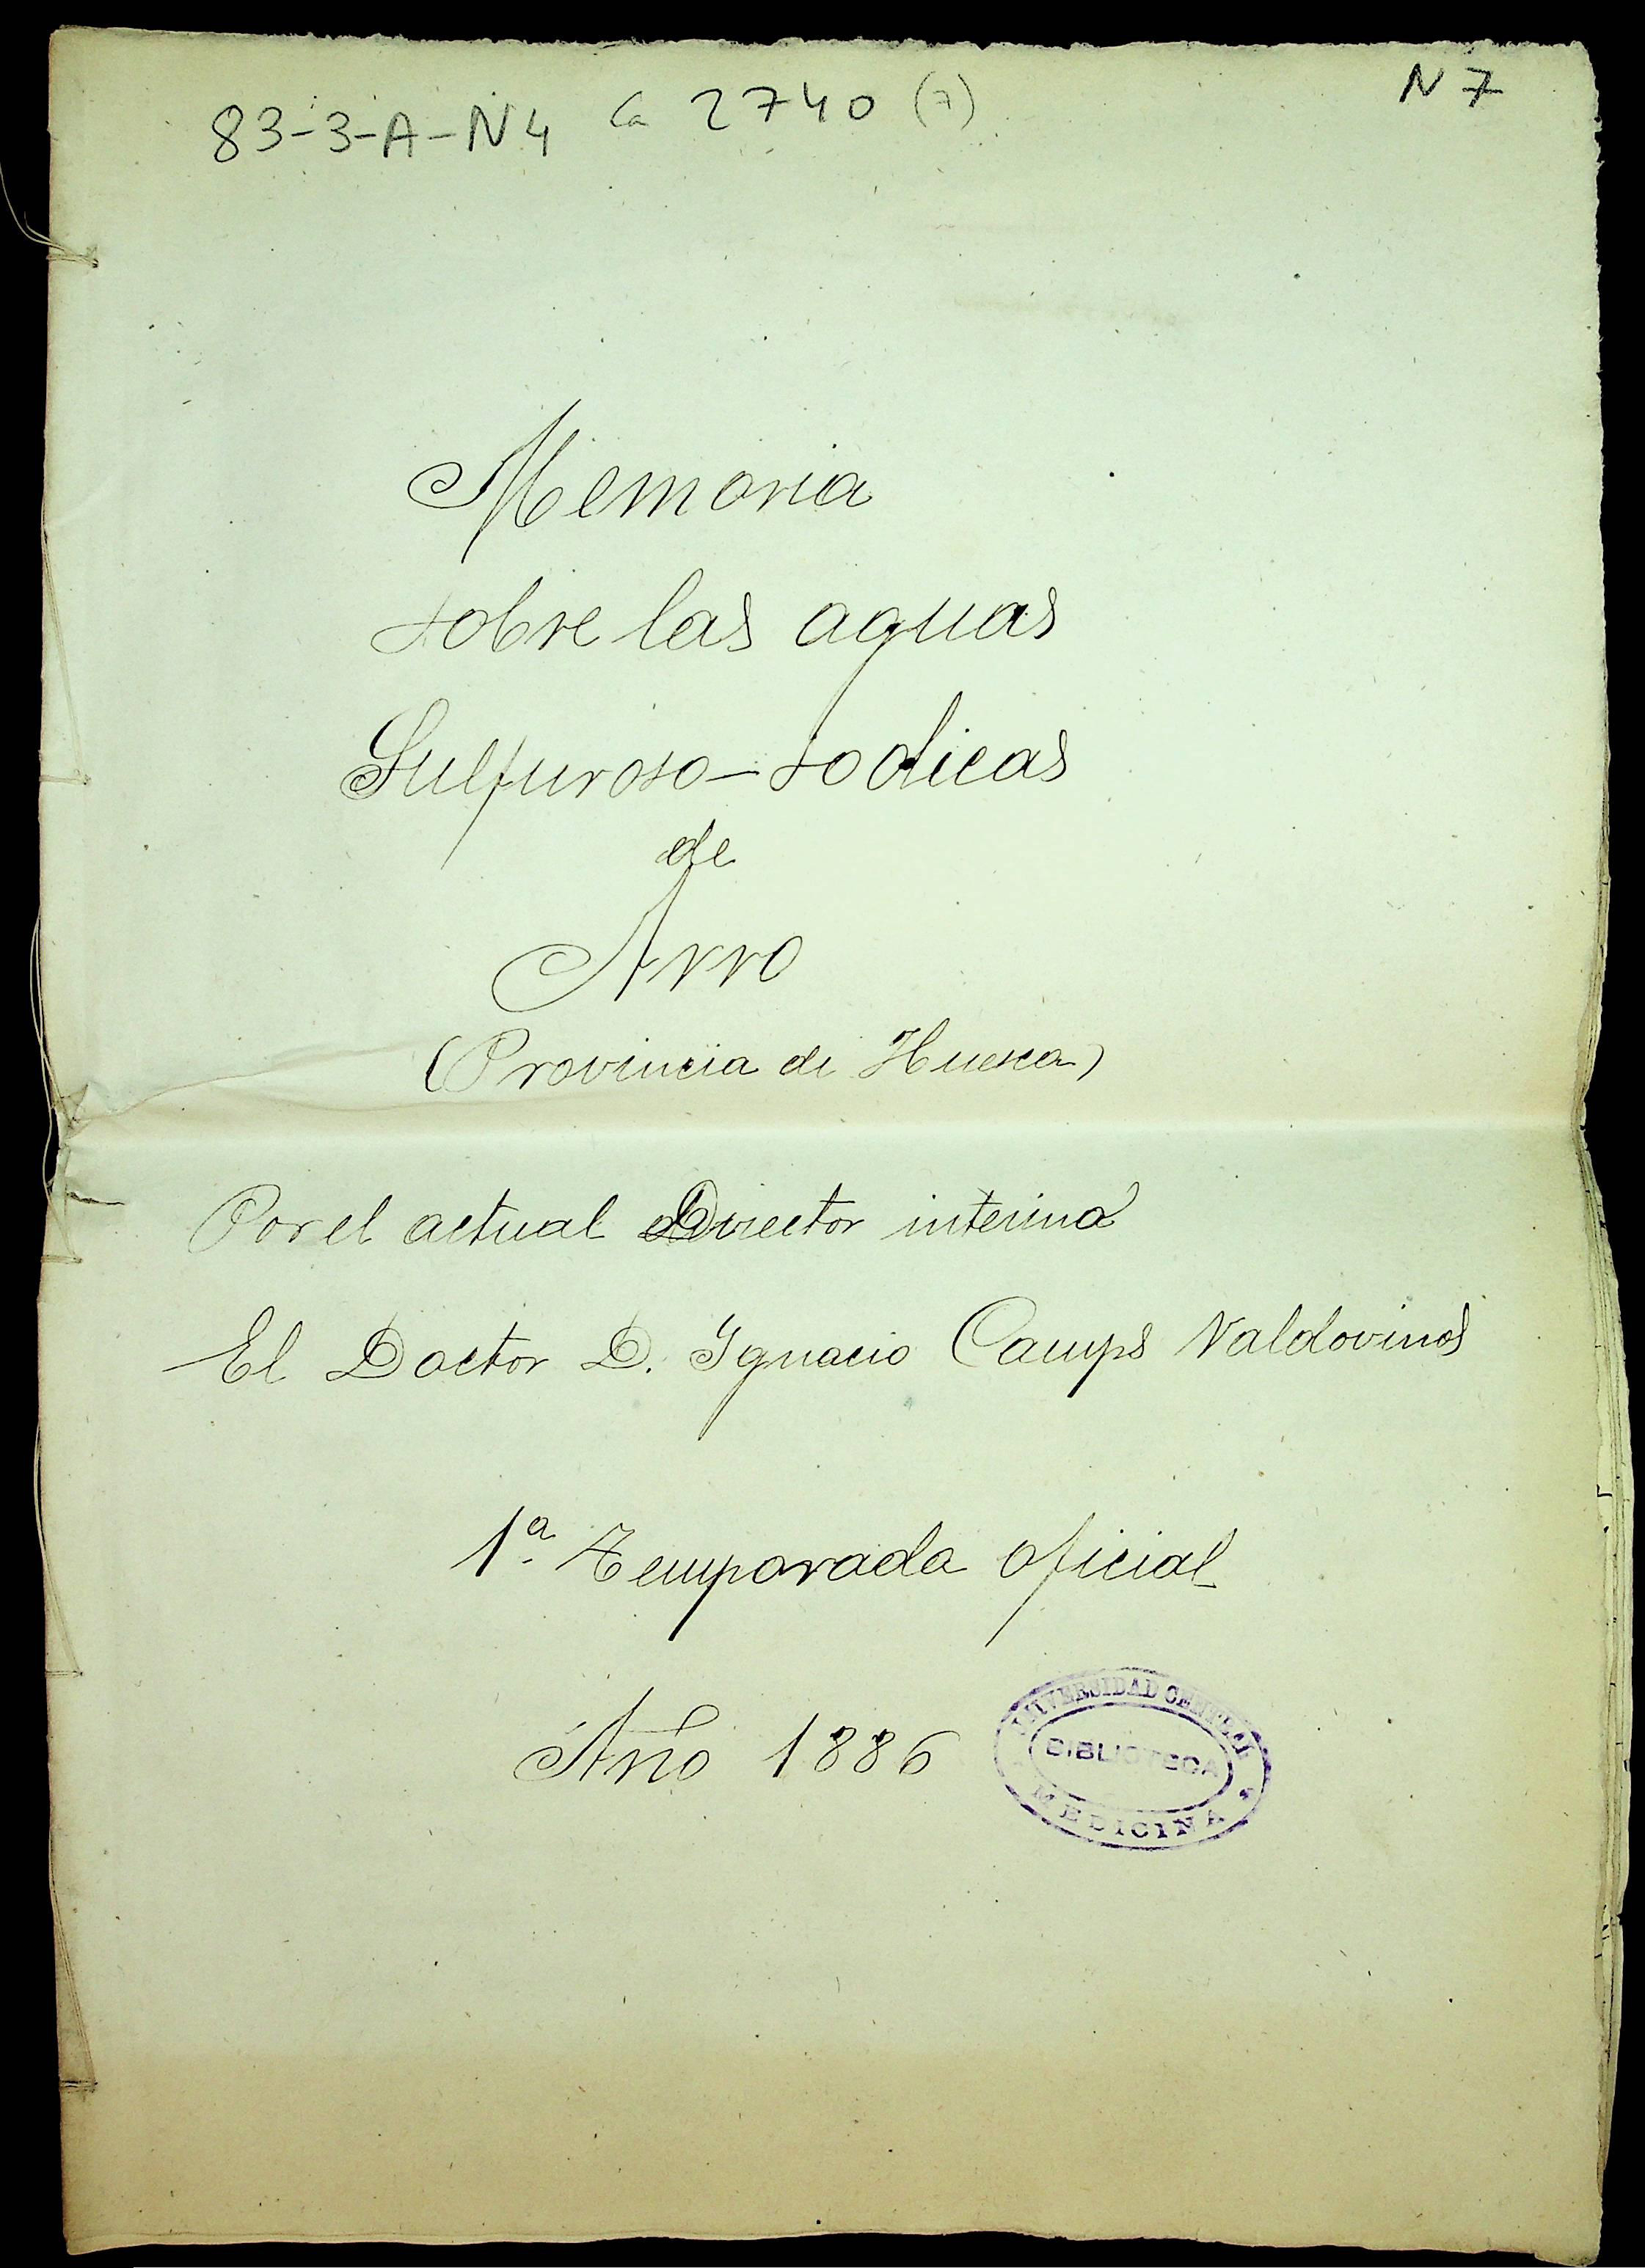 83-3-A-N4 Ca 2740 (7)
N 7
Memoria
sobre las aguas
Sulfuroso-sodicas
de
Arro
(Provincia de Huesca)
Por el actual Director interino
El Doctor D. Ignacio Camps Valdovinos
1ª Temporada oficial
Año 1886
UNIVERSIDAD CENTRAL
BIBLIOTECA
MEDICINA